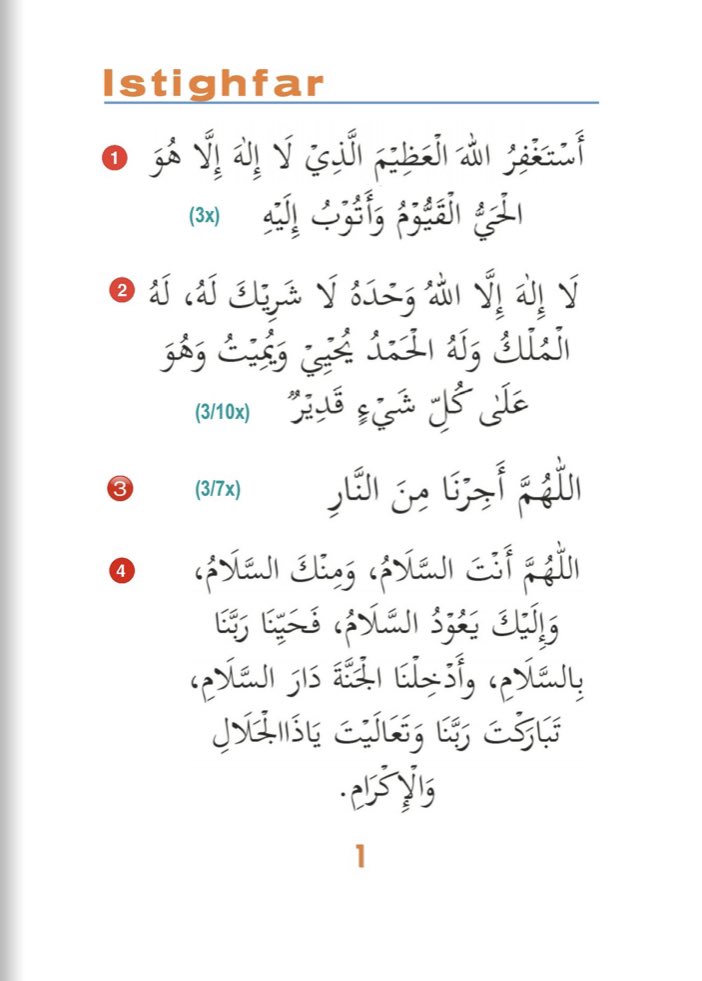 Istighfar
1 أَسْتَغْفِرُ اللهَ الْعَظِيْمَ الَّذِيْ لَا إِلٰهَ إِلَّا هُوَ
الْحَيُّ الْقَيُّوْمُ وَأَتُوْبُ إِلَيْهِ (3x)
2 لَا إِلٰهَ إِلَّا اللهُ وَحْدَهُ لَا شَرِيْكَ لَهُ، لَهُ
الْمُلْكُ وَلَهُ الْحَمْدُ يُحْيِيْ وَيُمِيْتُ وَهُوَ
عَلَىٰ كُلِّ شَيْءٍ قَدِيْرٌ (3/10x)
3 اللّٰهُمَّ أَجِرْنَا مِنَ النَّارِ (3/7x)
4 اللّٰهُمَّ أَنْتَ السَّلَامُ، وَمِنْكَ السَّلَامُ،
وَإِلَيْكَ يَعُوْدُ السَّلَامُ، فَحَيِّنَا رَبَّنَا
بِالسَّلَامِ، وأَدْخِلْنَا الْجَنَّةَ دَارَ السَّلَامِ،
تَبَارَكْتَ رَبَّنَا وَتَعَالَيْتَ يَاذَاالْجَلَالِ
وَالْإِكْرَامِ.
1